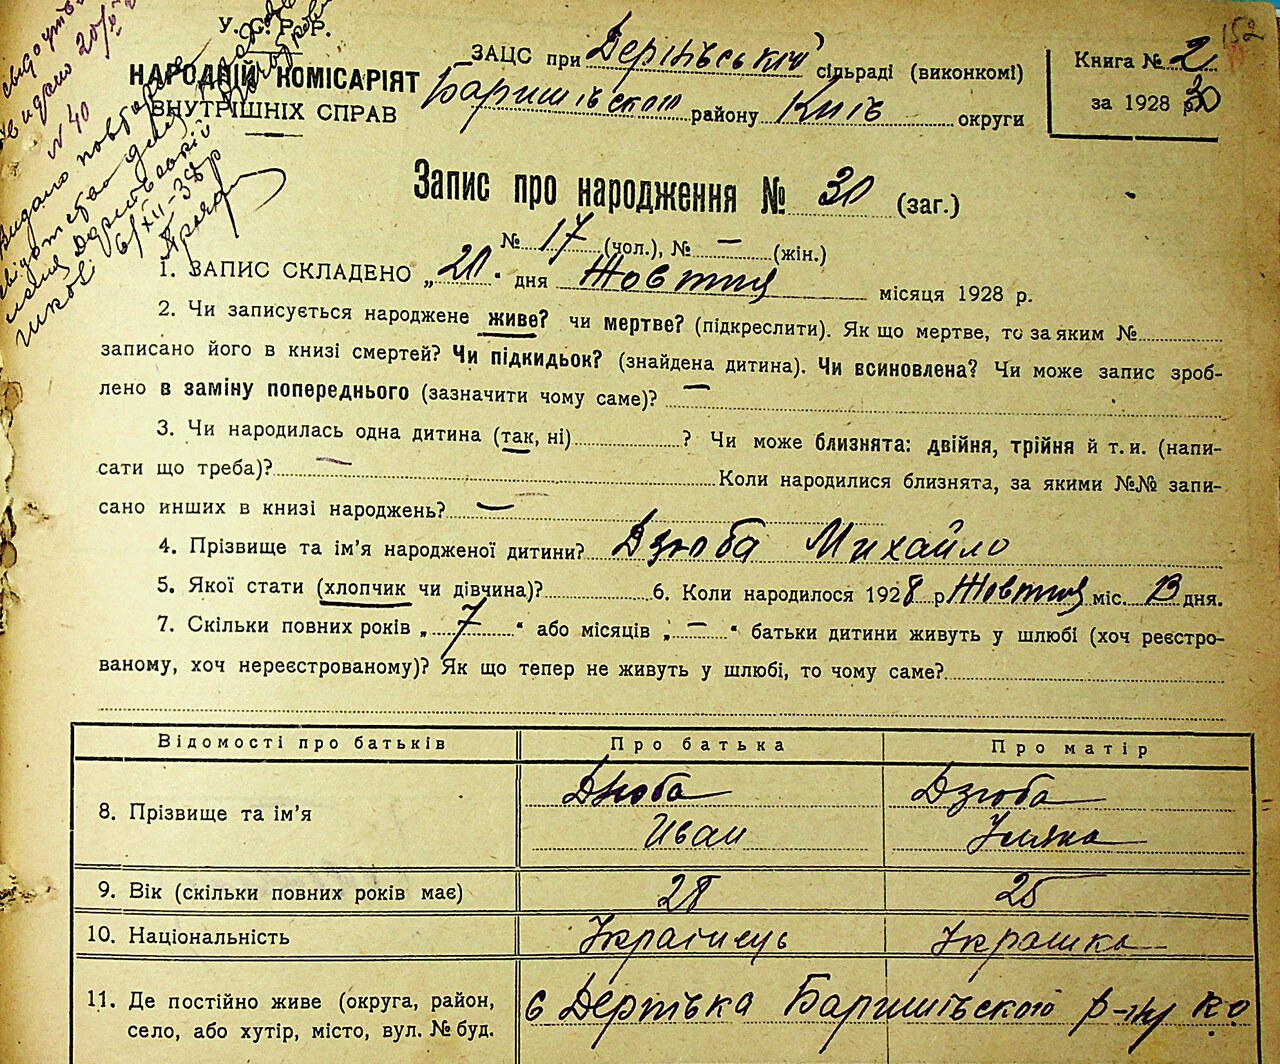 152
У. С. Р. Р.
НАРОДНІЙ КОМІСАРІЯТ
ВНУТРІШНІХ СПРАВ
видано 20/
N 40
Видано повторне
6/XII-38р
школі
ЗАЦС при Дернівській сільраді (виконкомі)
Баришівського району Київ округи
Книга № 2
за 1928 р 30
Запис про народження № 30 (заг.)
№ 17 (чол.), № — (жін.)
1. ЗАПИС СКЛАДЕНО „20" дня Жовтня місяця 1928 р.
2. Чи записується народжене живе? чи мертве? (підкреслити). Як що мертве, то за яким №
записано його в книзі смертей? Чи підкидьок? (знайдена дитина). Чи всиновлена? Чи може запис зроб-
лено в заміну попереднього (зазначити чому саме)? —
3. Чи народилась одна дитина (так, ні) ? Чи може близнята: двійня, трійня й т. и. (напи-
сати що треба)? — Коли народилися близнята, за якими №№ запи-
сано инших в книзі народжень? —
4. Прізвище та ім'я народженої дитини? Дзюба Михайло
5. Якої стати (хлопчик чи дівчина)? 6. Коли народилося 1928 р Жовтня міс. 13 дня.
7. Скільки повних років „ 7 " або місяців „ — " батьки дитини живуть у шлюбі (хоч реєстро-
ваному, хоч нереєстрованому)? Як що тепер не живуть у шлюбі, то чому саме?
Відомості про батьків Про батька Про матір
8. Прізвище та ім'я Дзюба Иван Дзюба
9. Вік (скільки повних років має) 28 25
10. Національність Українець Українка
11. Де постійно живе (округа, район,
село, або хутір, місто, вул. № буд.
с Дернівка Баришівського р-ну К.О